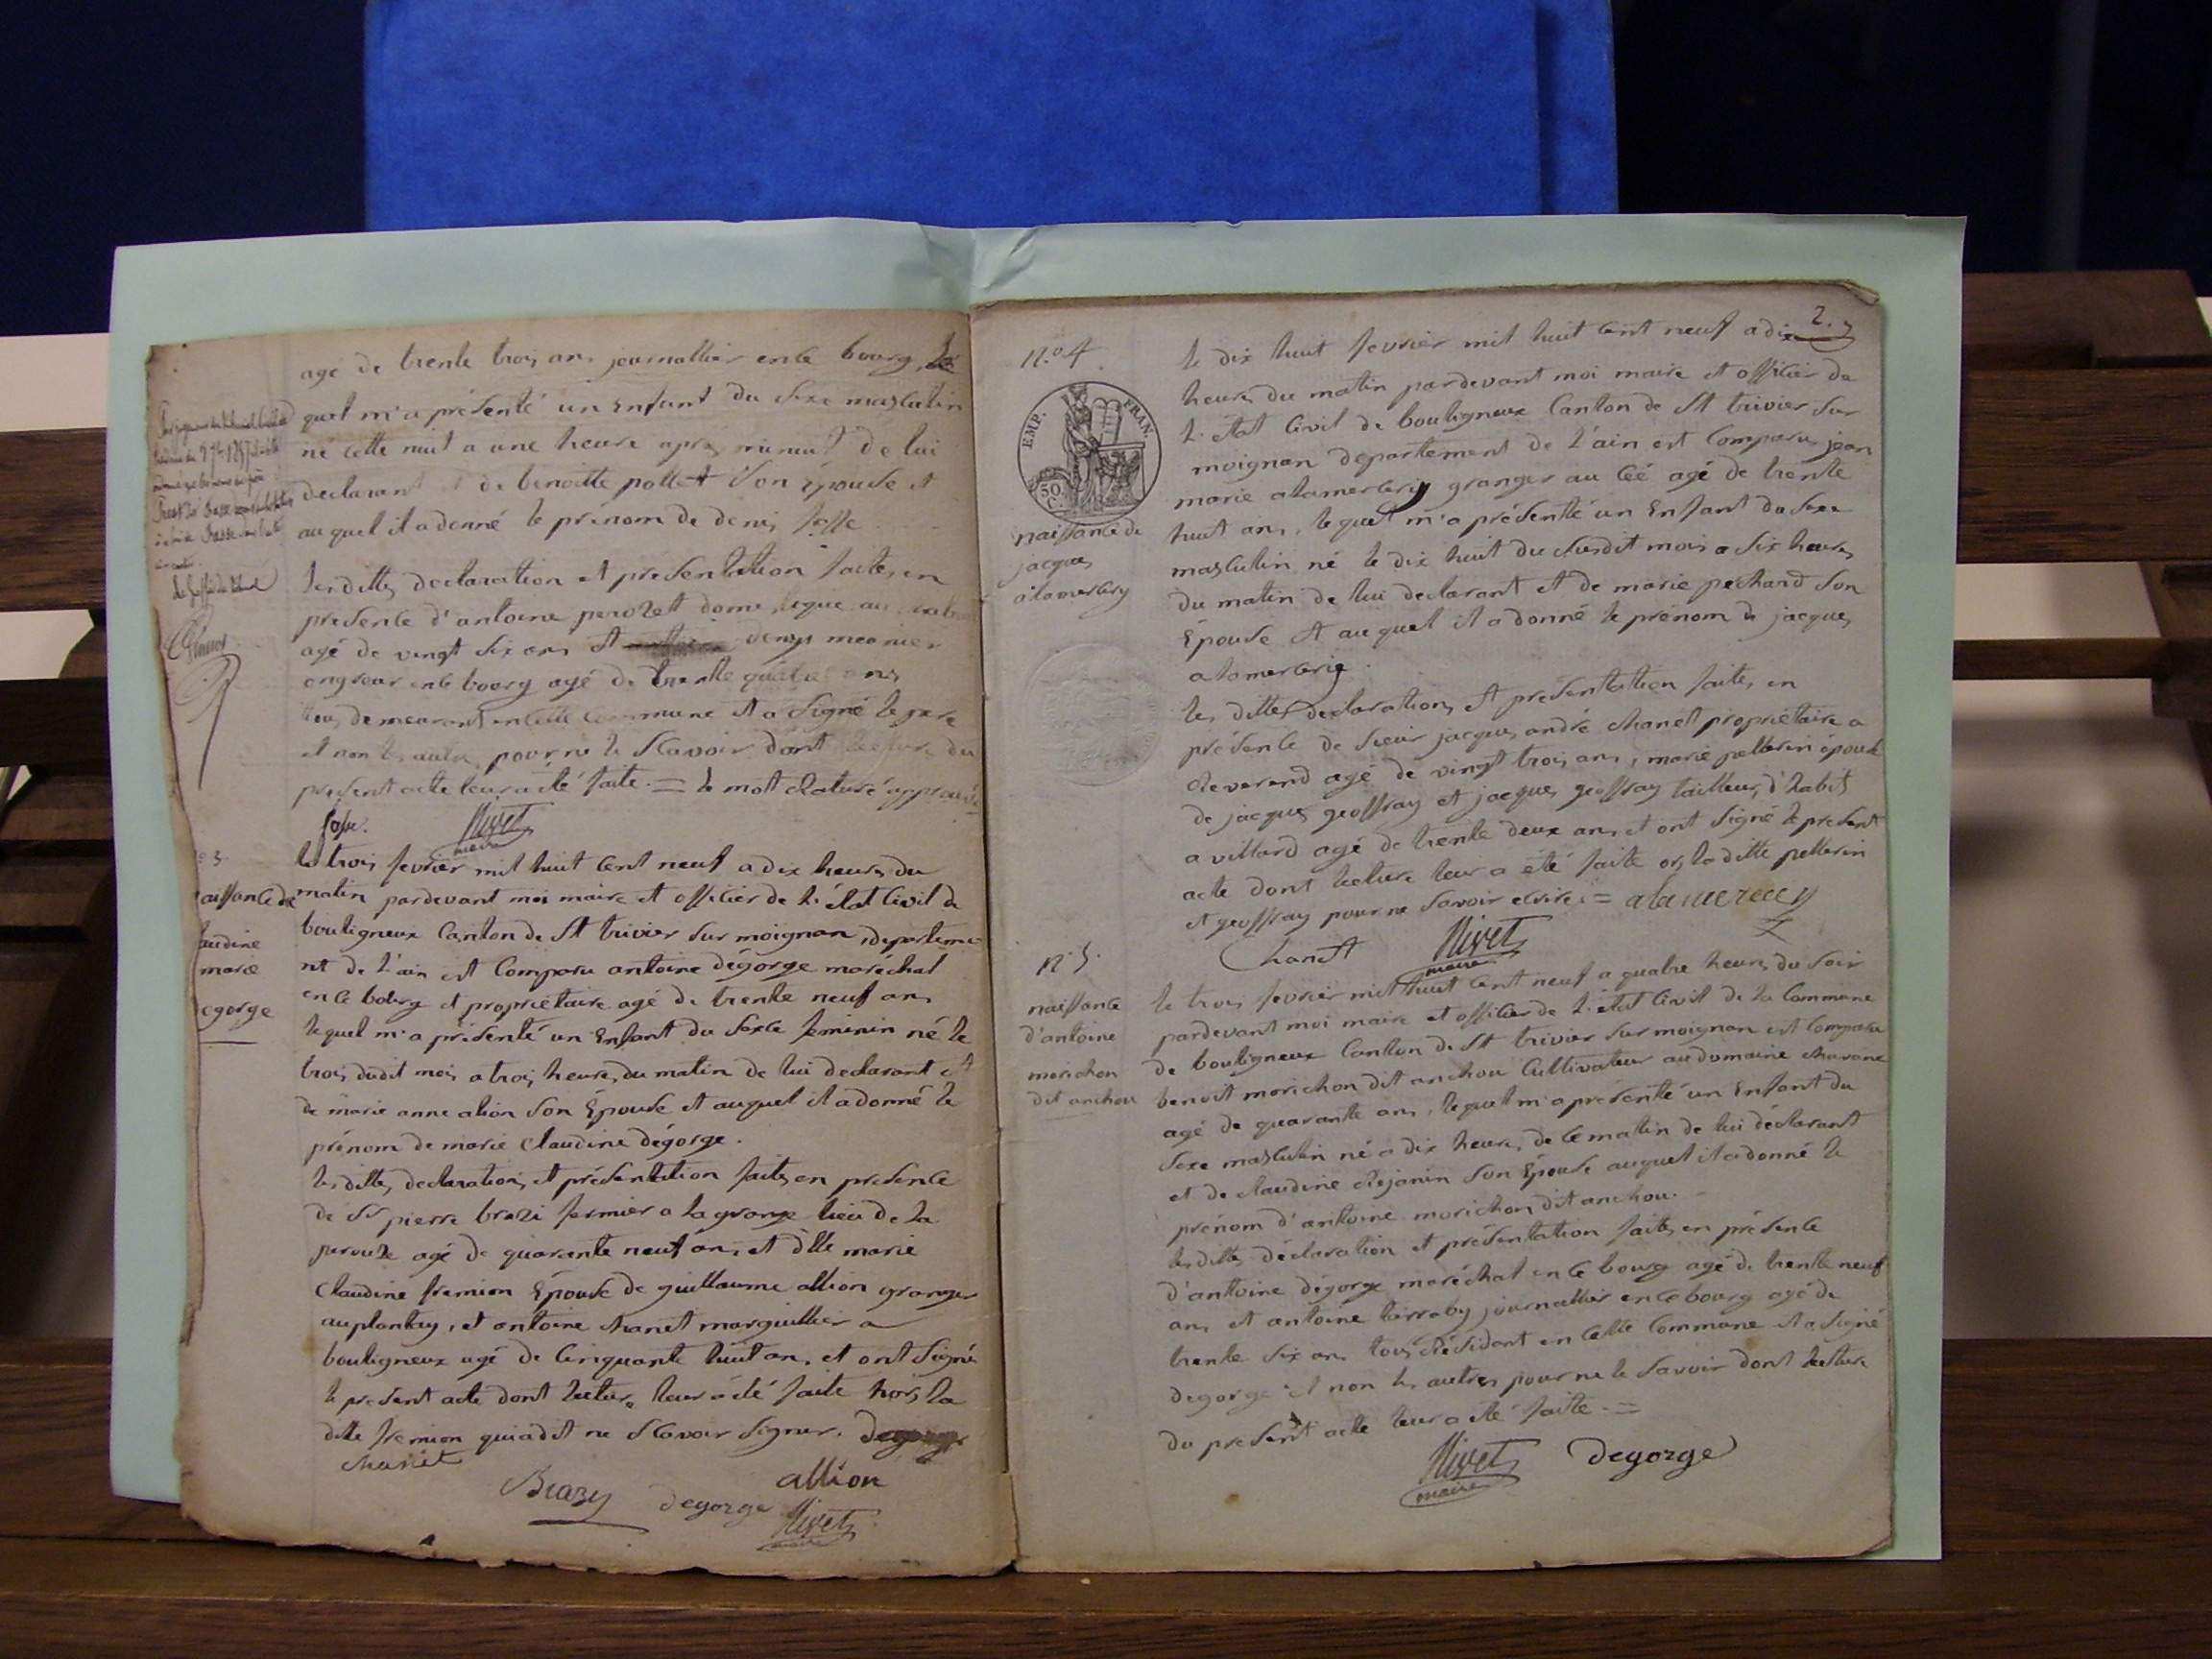 agé de trente trois ans journallier en ce bourg le
quel m'a présenté un Enfant du sexe masculin
né cette nuit a une heure après minuit de lui
declarant et de benoitte pollet son épouse et
au quel il a donné le prénom de denis
declaration et présentation faites en
presence d'antoine perozet domestique au
agé de vingt six ans et denys meonier
en ce bourg agé de trente quatre ans
tous demeurant en cette commune et a signé le pere
et non les autres pour ne le sçavoir dont lecture du
present acte leur a été faite. = le mot raturé approuvé
Nivet
maire
3
aissance de
audine
marie
egorge
le trois fevrier mil huit cent neuf a dix heures du
matin pardevant moi maire et officier de l'état civil de
bouligneux canton de St trivier sur moignan, departeme
nt de l'ain est comparu antoine dégorge maréchal
en ce bourg et propriétaire agé de trente neuf ans
lequel m'a présenté un Enfant du sexe feminin né le
trois dudit mois a trois heures du matin de lui declarant et
de marie anne alion son Epouse et auquel il a donné le
prénom de marie claudine dégorge.
les dittes declarations et présentation faites en presence
de Sr pierre brazi fermier a la grange lieu de la
perouze agé de quarante neuf ans et dlle marie
claudine fremion Epouse de guillaume allion granger
au plantay, et antoine chanet marguillier a
bouligneux agé de cinquante huit ans, et ont signé
le present acte dont lecture leur a été faite hors la
ditte fremion qui a dit ne sçavoir signer.
chanet
allion
Brazy degorge Nivet
maire
2.
n.º 4
EMP. FRAN.
50
C.
naissance de
jacques
alamercery
le dix huit fevrier mil huit cent neuf a dix
heures du matin pardevant moi maire et officier de
l'état civil de bouligneux canton de St trivier sur
moignan departement de l'ain est comparu jean
marie alamercery granger au agé de trente
huit ans, lequel m'a présenté un Enfant du sexe
masculin né le dix huit du susdit mois a six heures
du matin de lui declarant et de marie pechard son
Epouse et auquel il a donné le prénom de jacques
alamercerie.
les dittes declarations et présentation faites en
présence de sieur jacques andré chanet propriétaire a
agé de vingt trois ans, marie pellerin épouse
de jacques geoffray et jacques geoffray tailleur d'habits
a villard agé de trente deux ans et ont signé le present
acte dont lecture leur a été faite ors la ditte pellerin
et geoffray pour ne savoir = alamercery
chanet Nivet
maire
n.º 5.
naissance
d'antoine
morichon
dit anchou
le trois fevrier mil huit cent neuf a quatre heures du soir
pardevant moi maire et officier de l'état civil de la commune
de bouligneux canton de St trivier sur moignan est comparu
benoit morichon dit anchou cultivateur au domaine
agé de quarante ans, lequel m'a présenté un Enfant du
sexe masculin né a dix heures de ce matin de lui déclarant
et de claudine son Epouse auquel il a donné le
prénom d'antoine morichon dit anchou.
les dittes déclaration et présentation faites en présence
d'antoine dégorge maréchal en ce bourg agé de trente neuf
ans et antoine journallier en ce bourg agé de
trente six ans tous résidant en cette commune et a signé
degorge et non les autres pour ne le savoir dont lecture
du present acte leur a été faite. =
Nivet degorge
maire